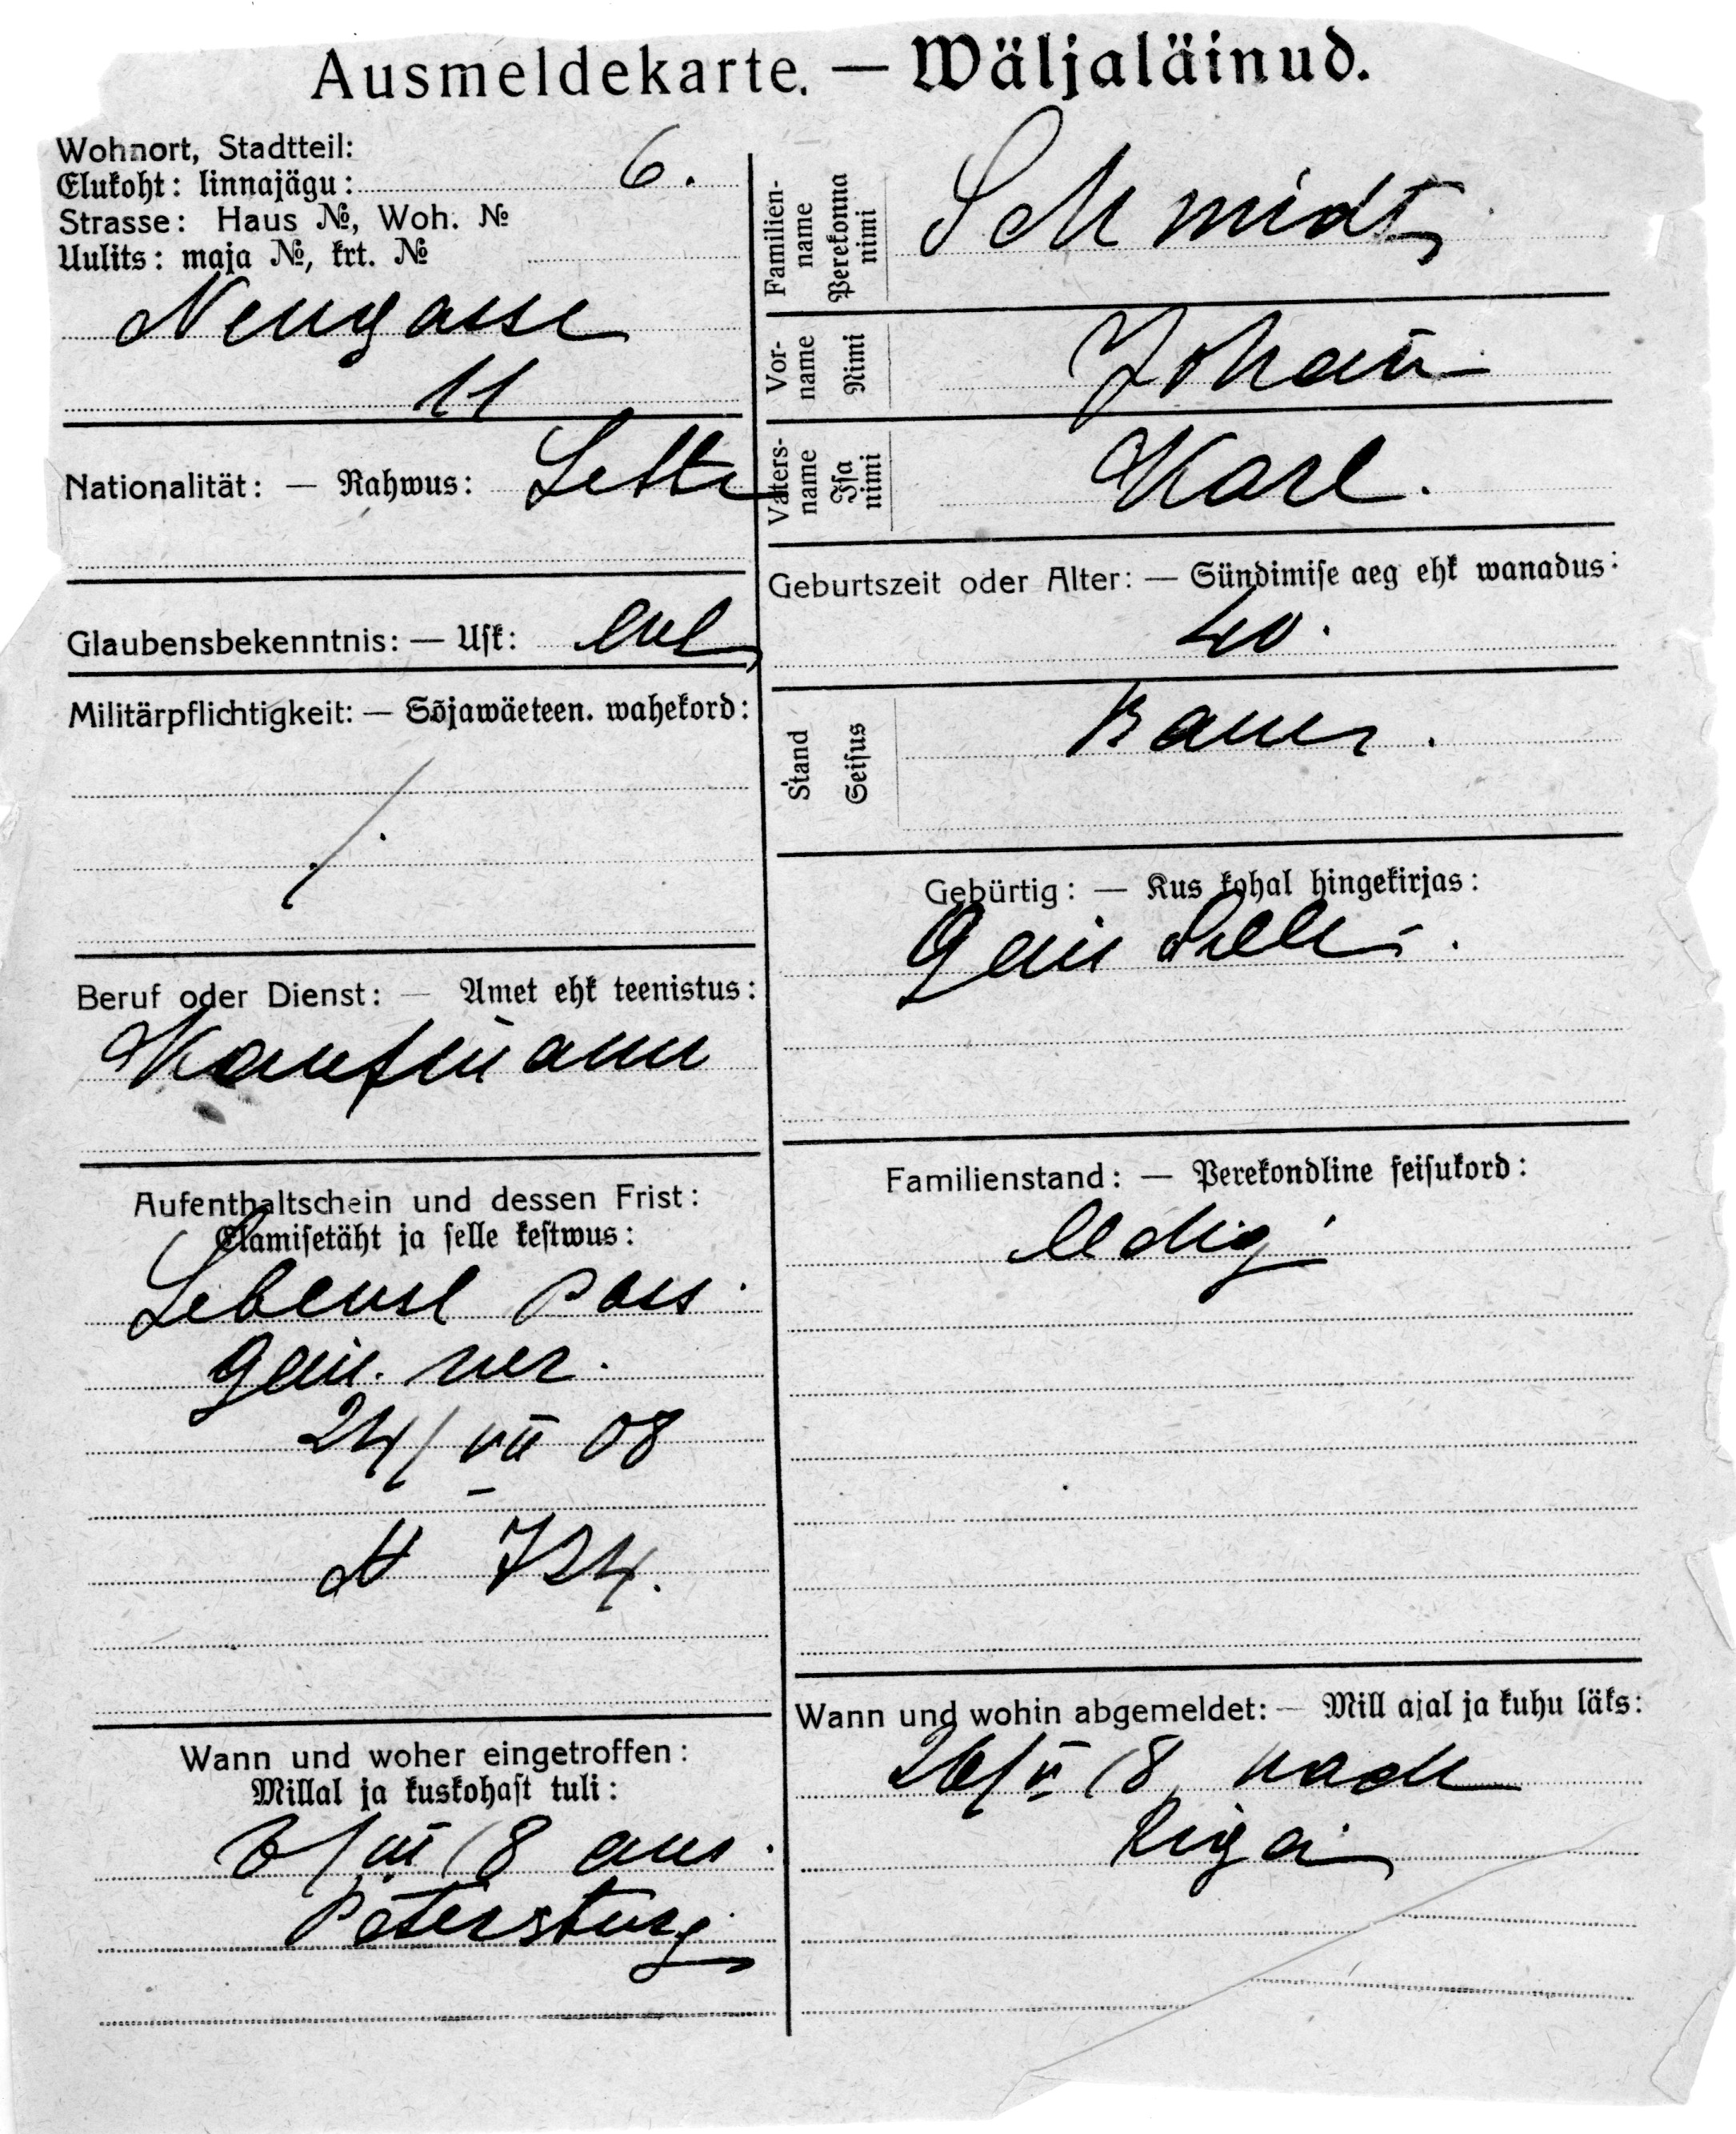 Ausmeldekarte. — Wäljaläinud.
Wohnort, Stadtteil:
Elukoht: linnajägu: 6.
Strasse: Haus №, Woh. №
Uulits: maja №, krt. №
Neugasse
11
Nationalität: — Rahwus: Lette
Glaubensbekenntnis: — Usk: evl
Militärpflichtigkeit: — Sõjawäeteen. wahekord:
Beruf oder Dienst: — Amet ehk teenistus:
Kaufmann
Aufenthaltschein und dessen Frist:
Elamisetäht ja selle kestwus:
Lebensl pass.
24/VII 08
№ 724.
Wann und woher eingetroffen:
Millal ja kuskohast tuli:
/III 18 aus
Petersburg
Familien-
name
Perekonna
nimi
Schmidt
Vor-
name
Nimi
Johan̄
Vaters-
name
Isa
nimi
Karl.
Geburtszeit oder Alter: — Sündimise aeg ehk wanadus:
40.
Stand
Seisus
Bauer.
Gebürtig: — Kus kohal hingekirjas:
Familienstand: — Perekondline seisukord:
ledig
Wann und wohin abgemeldet: — Mill ajal ja kuhu läks:
26/V 18, nach
Riga